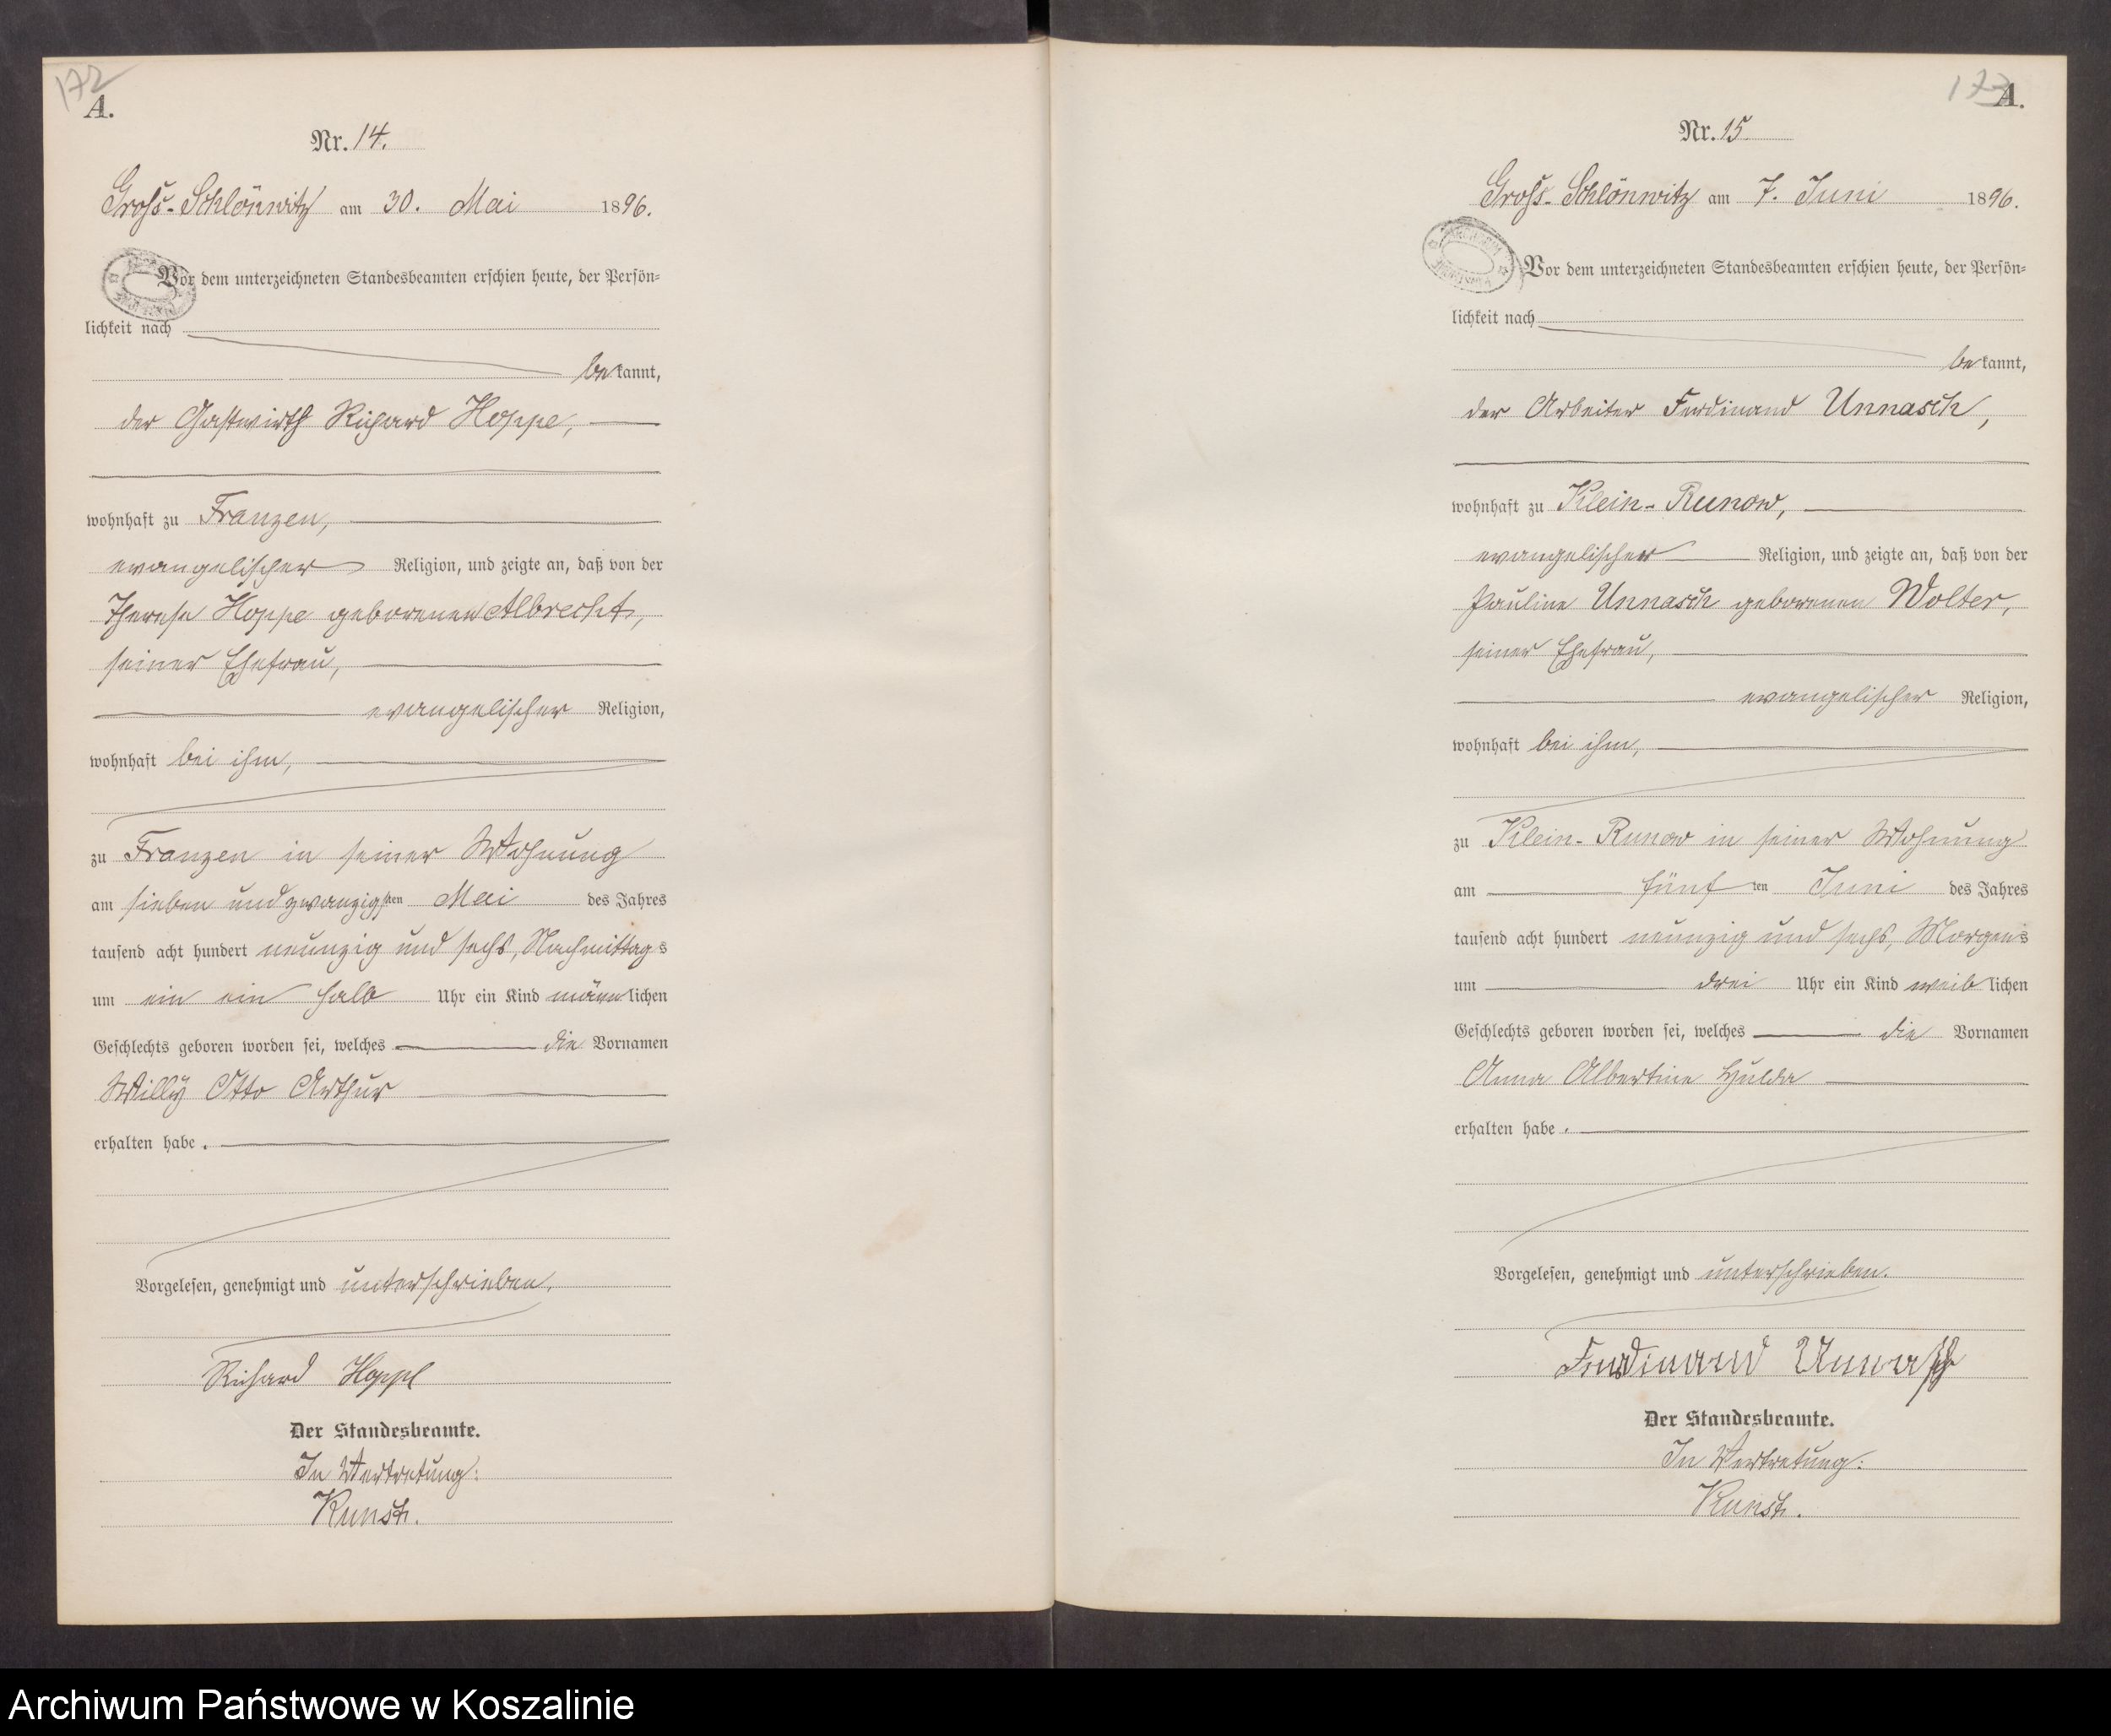 172
A.
Nr. 14.
Groß-Schlönwitz am 30. Mai 1896.
Vor dem unterzeichneten Standesbeamten erschien heute, der Persön-
lichkeit nach
bekannt,
der Gastwirth Richard Hoppe,
wohnhaft zu Franzen,
evangelischer Religion, und zeigte an, daß von der
Therese Hoppe geborenen Albrecht,
seiner Ehefrau,
evangelischer Religion,
wohnhaft bei ihm,
zu Franzen in seiner Wohnung
am sieben und zwanzigsten Mai des Jahres
tausend acht hundert neunzig und sechs, Nachmittags
um ein ein halb Uhr ein Kind männlichen
Geschlechts geboren worden sei, welches die Vornamen
Willy Otto Arthur
erhalten habe.
Vorgelesen, genehmigt und unterschrieben.
Richard Hoppe
Der Standesbeamte.
In Vertretung:
173
A.
Nr. 15
Groß-Schlönwitz am 7. Juni 1896.
Vor dem unterzeichneten Standesbeamten erschien heute, der Persön-
lichkeit nach
bekannt,
der Arbeiter Ferdinand Unnasch,
wohnhaft zu Klein-Runow,
evangelischer Religion, und zeigte an, daß von der
Pauline Unnasch geborenen Wolter,
seiner Ehefrau,
evangelischer Religion,
wohnhaft bei ihm,
zu Klein-Runow in seiner Wohnung
am fünften Juni des Jahres
tausend acht hundert neunzig und sechs, Morgens
um drei Uhr ein Kind weiblichen
Geschlechts geboren worden sei, welches die Vornamen
Anna Albertine Hulda
erhalten habe.
Vorgelesen, genehmigt und unterschrieben.
Ferdinand Unnasch
Der Standesbeamte.
In Vertretung:
Archiwum Państwowe w Koszalinie